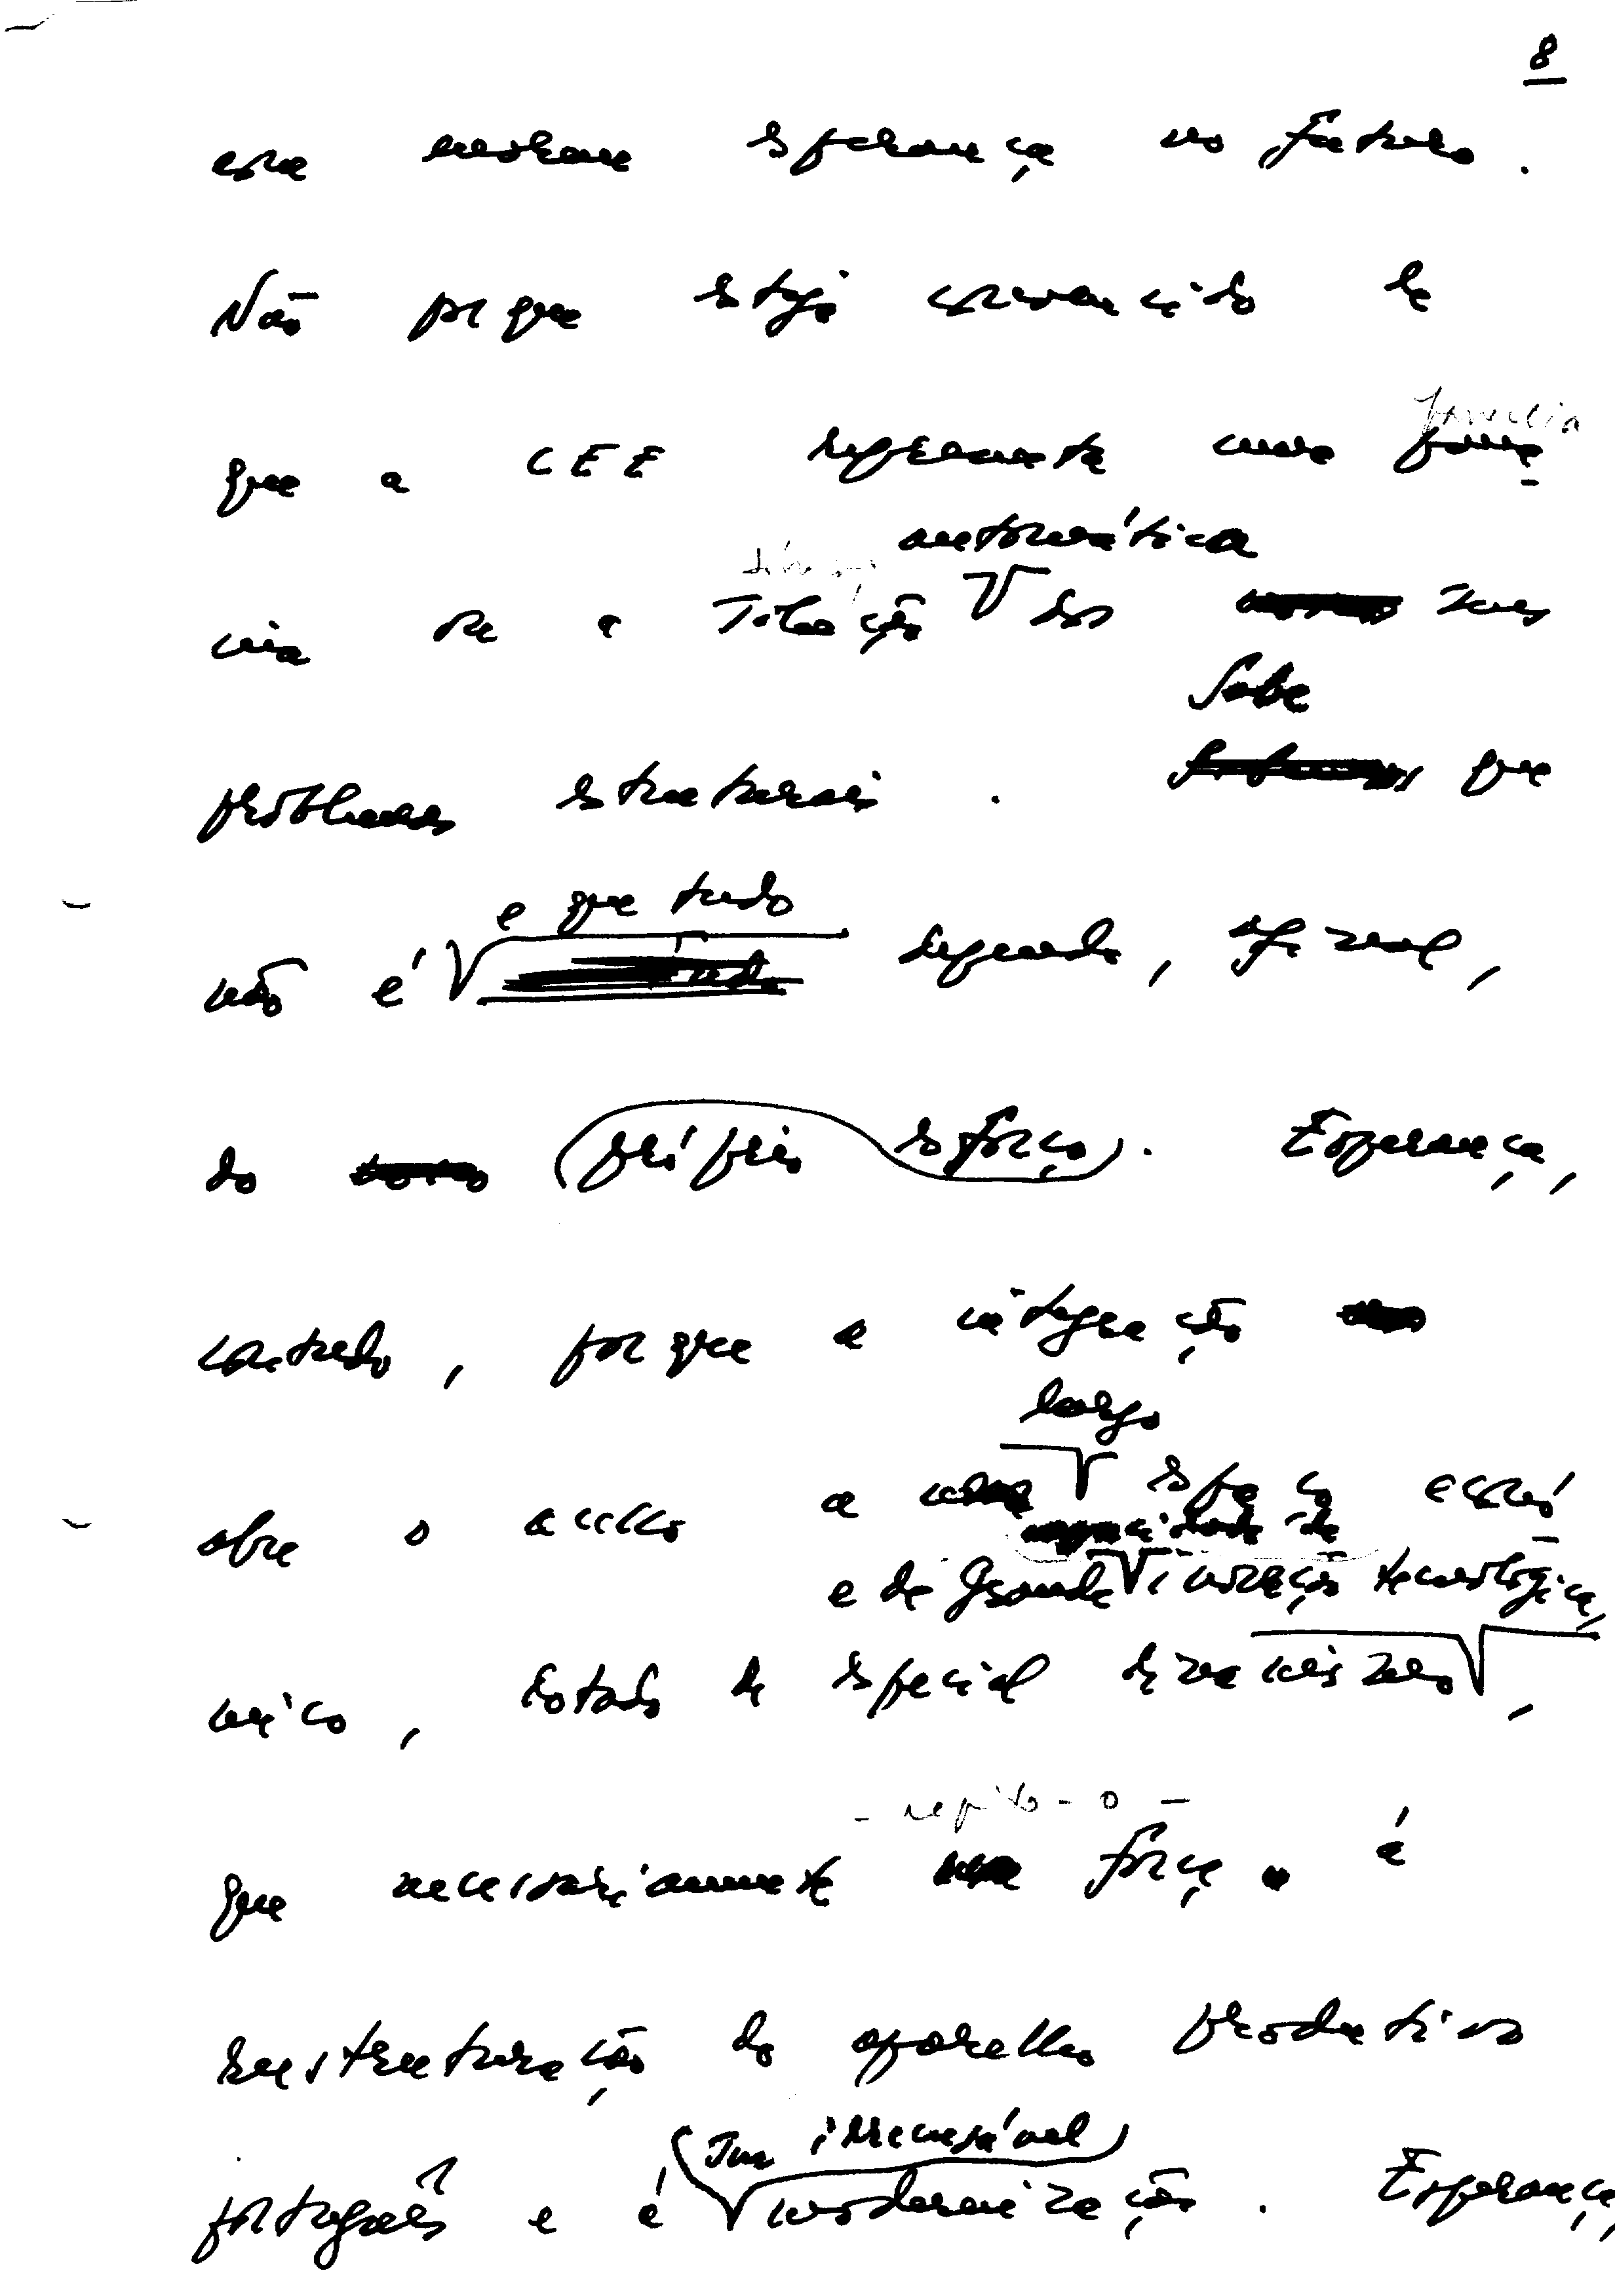 8
esperança no futuro.
Não porque esteja convencido de
que a CEE represente uma
panaceia
automática
cia para a dos seus
Sabe
problemas estruturais. que
e que tudo
não é depende, afinal,
do próprio esforço. Esperança,
contudo, porque a integração
largo
abre o acesso a espaço econó-
e de grande inovação tecnológica,
mico, dotado de especial dinamismo,
- repito-o -
que necessariamente força à
reestruturação do aparelho produtivo
sua irrecusável
português e à modernização. Esperança,